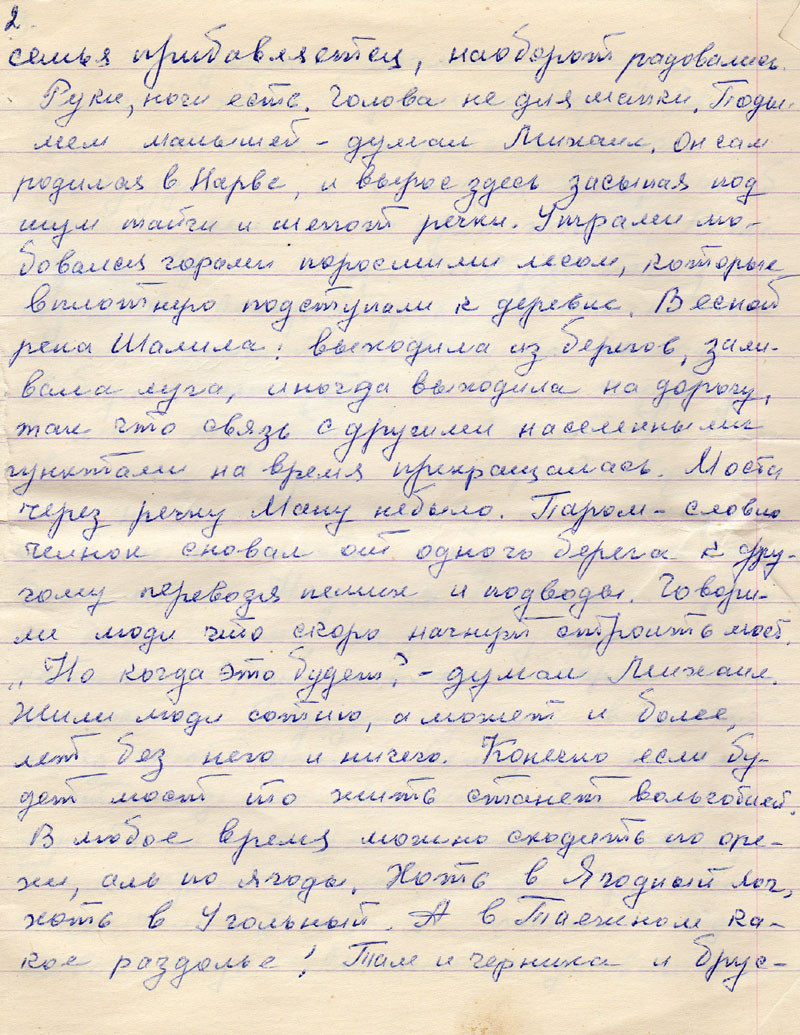 2.
семья прибавляется, наоборот радовались.
Руки, ноги есть. Голова не для шапки. Поды-
мем малышей - думал Михаил. Он сам
родился в Нарве, и вырос здесь засыпая под
шум тайги и шепот речки. Утрами лю-
бовался горами поросшими лесом, которые
вплотную подступали к деревне. Весной
река Шалила: выходила из берегов, зали-
вала луга, иногда выходила на дорогу,
так что связь с другими населенными
пунктами на время прекращалась. Моста
через речку Ману небыло. Паром - словно
челнок сновал от одного берега к дру-
гому перевозя пеших и подводы. Говори-
ли люди что скоро начнут строить мост.
„Но когда это будет? - думал Михаил.
Жили люди сотню, а может и более,
лет без него и ничего. Конечно если бу-
дет мост то жить станет вольготней.
В любое время можно сходить по оре-
хи, аль по ягоды. Хоть в Ягодный лог,
хоть в Угольный. А в Таежном ка-
кое раздолье! Там и черника и брус-